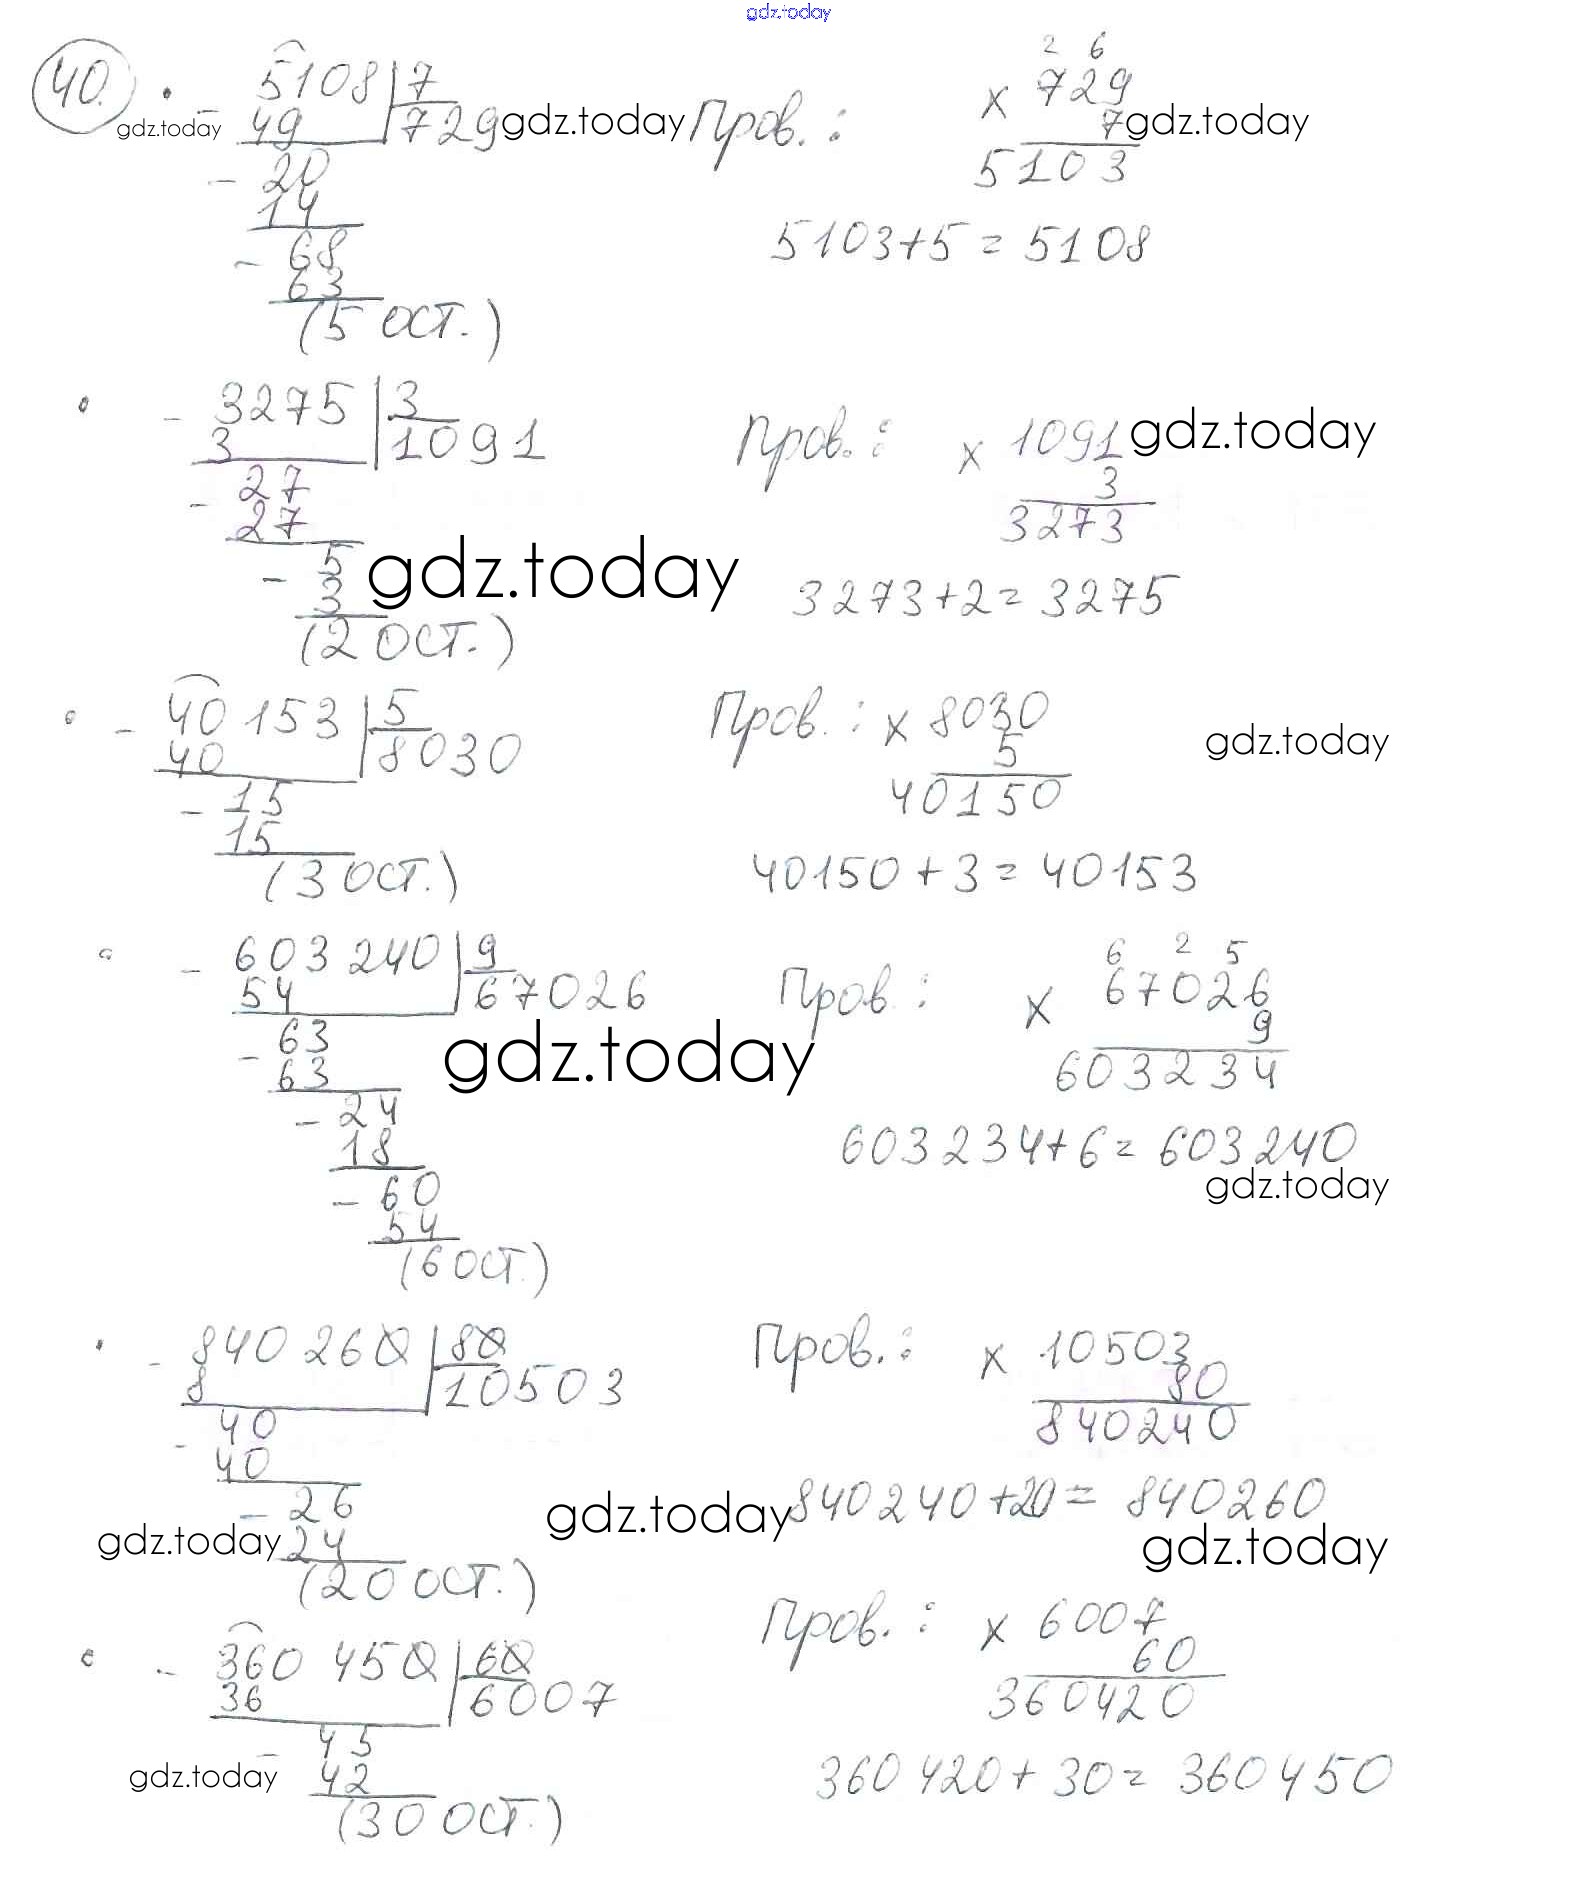 gdz.today
40.
5108 | 7
- 49 729
- 20
14
- 68
63
(5 ост.)
Пров.:
2 6
× 729
7
5103
5103+5=5108
gdz.today gdz.today gdz.today
- 3275 | 3
3 1091
- 27
27
- 5
3
(2 ост.)
Пров.:
× 1091
3
3273
3273+2=3275
gdz.today
gdz.today
- 40 153 | 5
40 8030
- 15
15
(3 ост.)
Пров.:
× 8030
5
40150
40150+3=40153
gdz.today
- 603 240 | 9
54 67026
- 63
63
- 24
18
- 60
54
(6 ост.)
Пров.:
6 2 5
× 67026
9
603234
603234+6=603240
gdz.today
gdz.today
- 840 260 | 80
8 10503
- 40
40
- 26
24
(20 ост.)
Пров.:
× 10503
80
840240
840240+20=840260
gdz.today gdz.today gdz.today
- 360 450 | 60
36 6007
- 45
42
(30 ост.)
Пров.:
× 6007
60
360420
360 420+30=360450
gdz.today